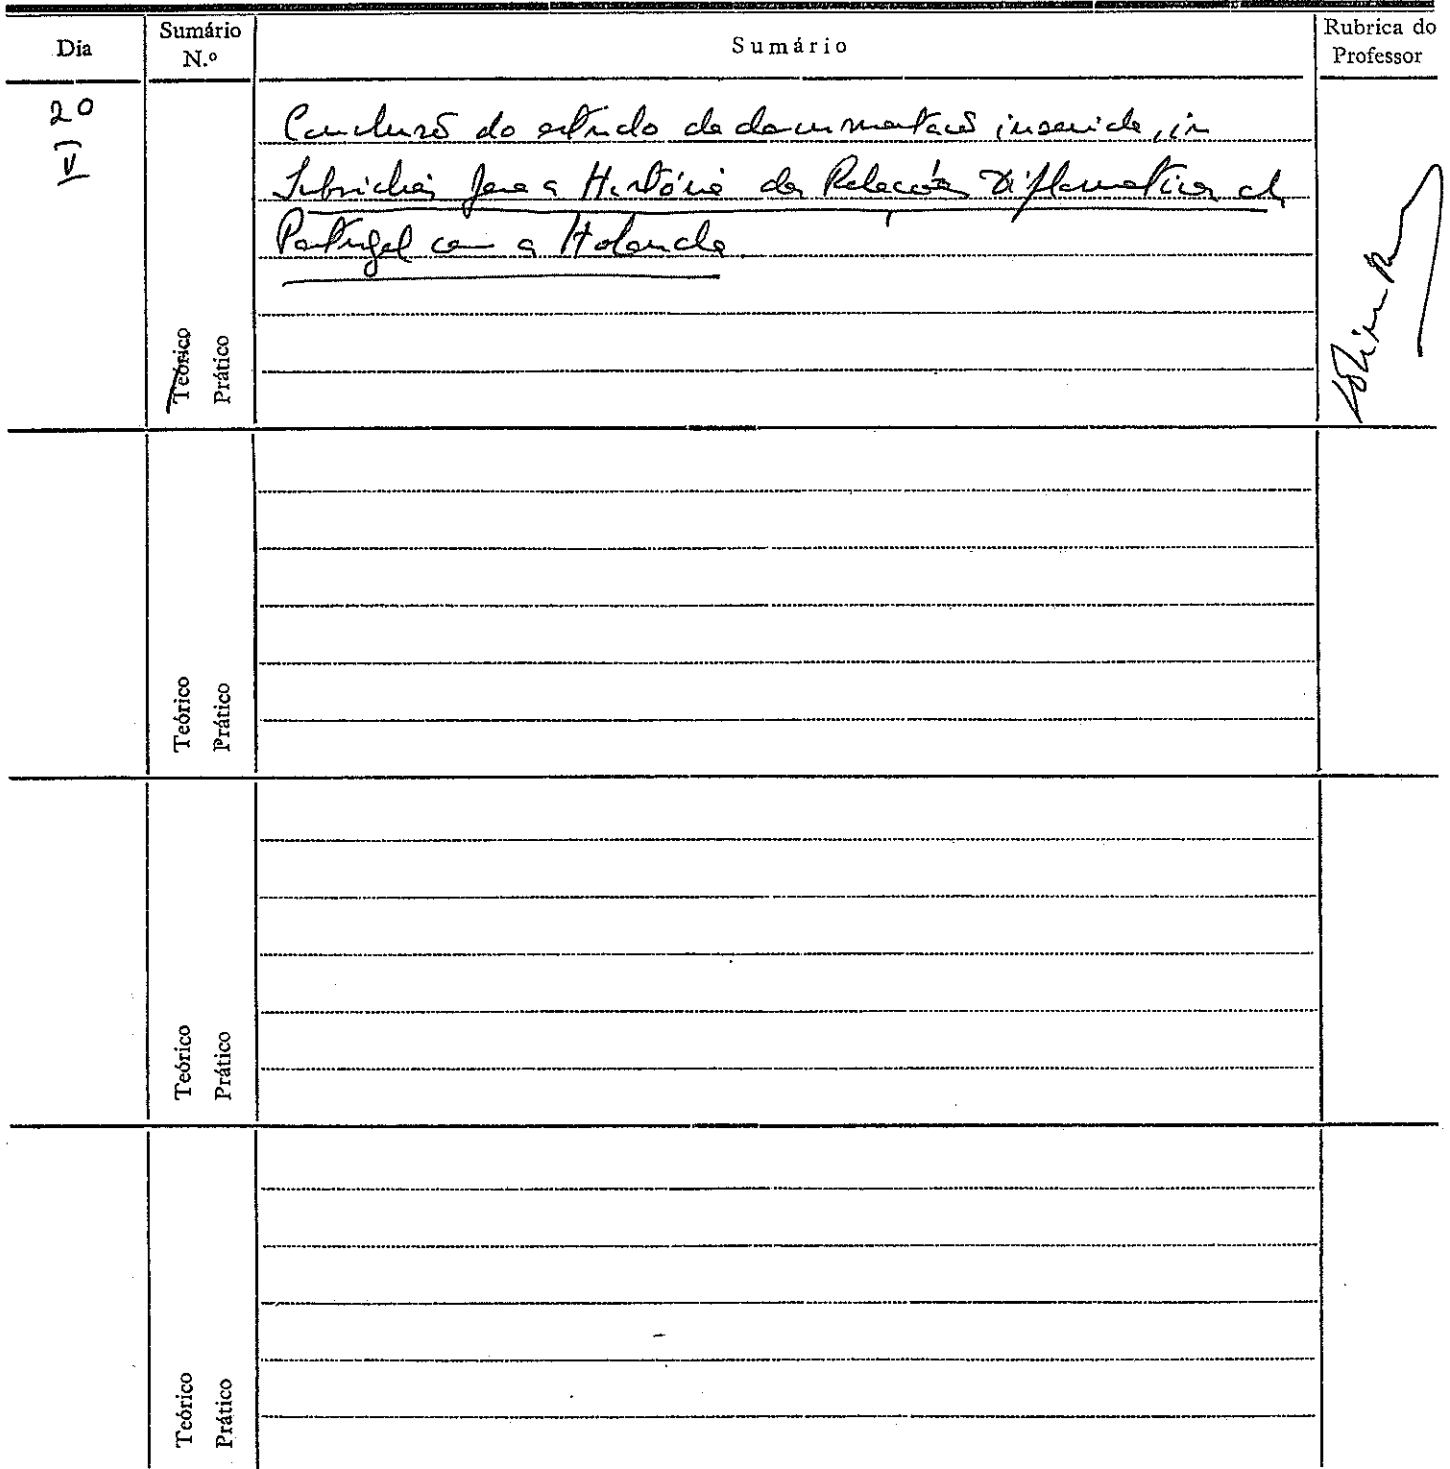 Dia
Sumário
N.º
Sumário
Rubrica do
Professor
20
V
Conclusão do estudo da documentação inserida, in
Subsídios para a História das Relações Diplomáticas de
Portugal com a Holanda
Teórico
Prático
Teórico
Prático
Teórico
Prático
Teórico
Prático